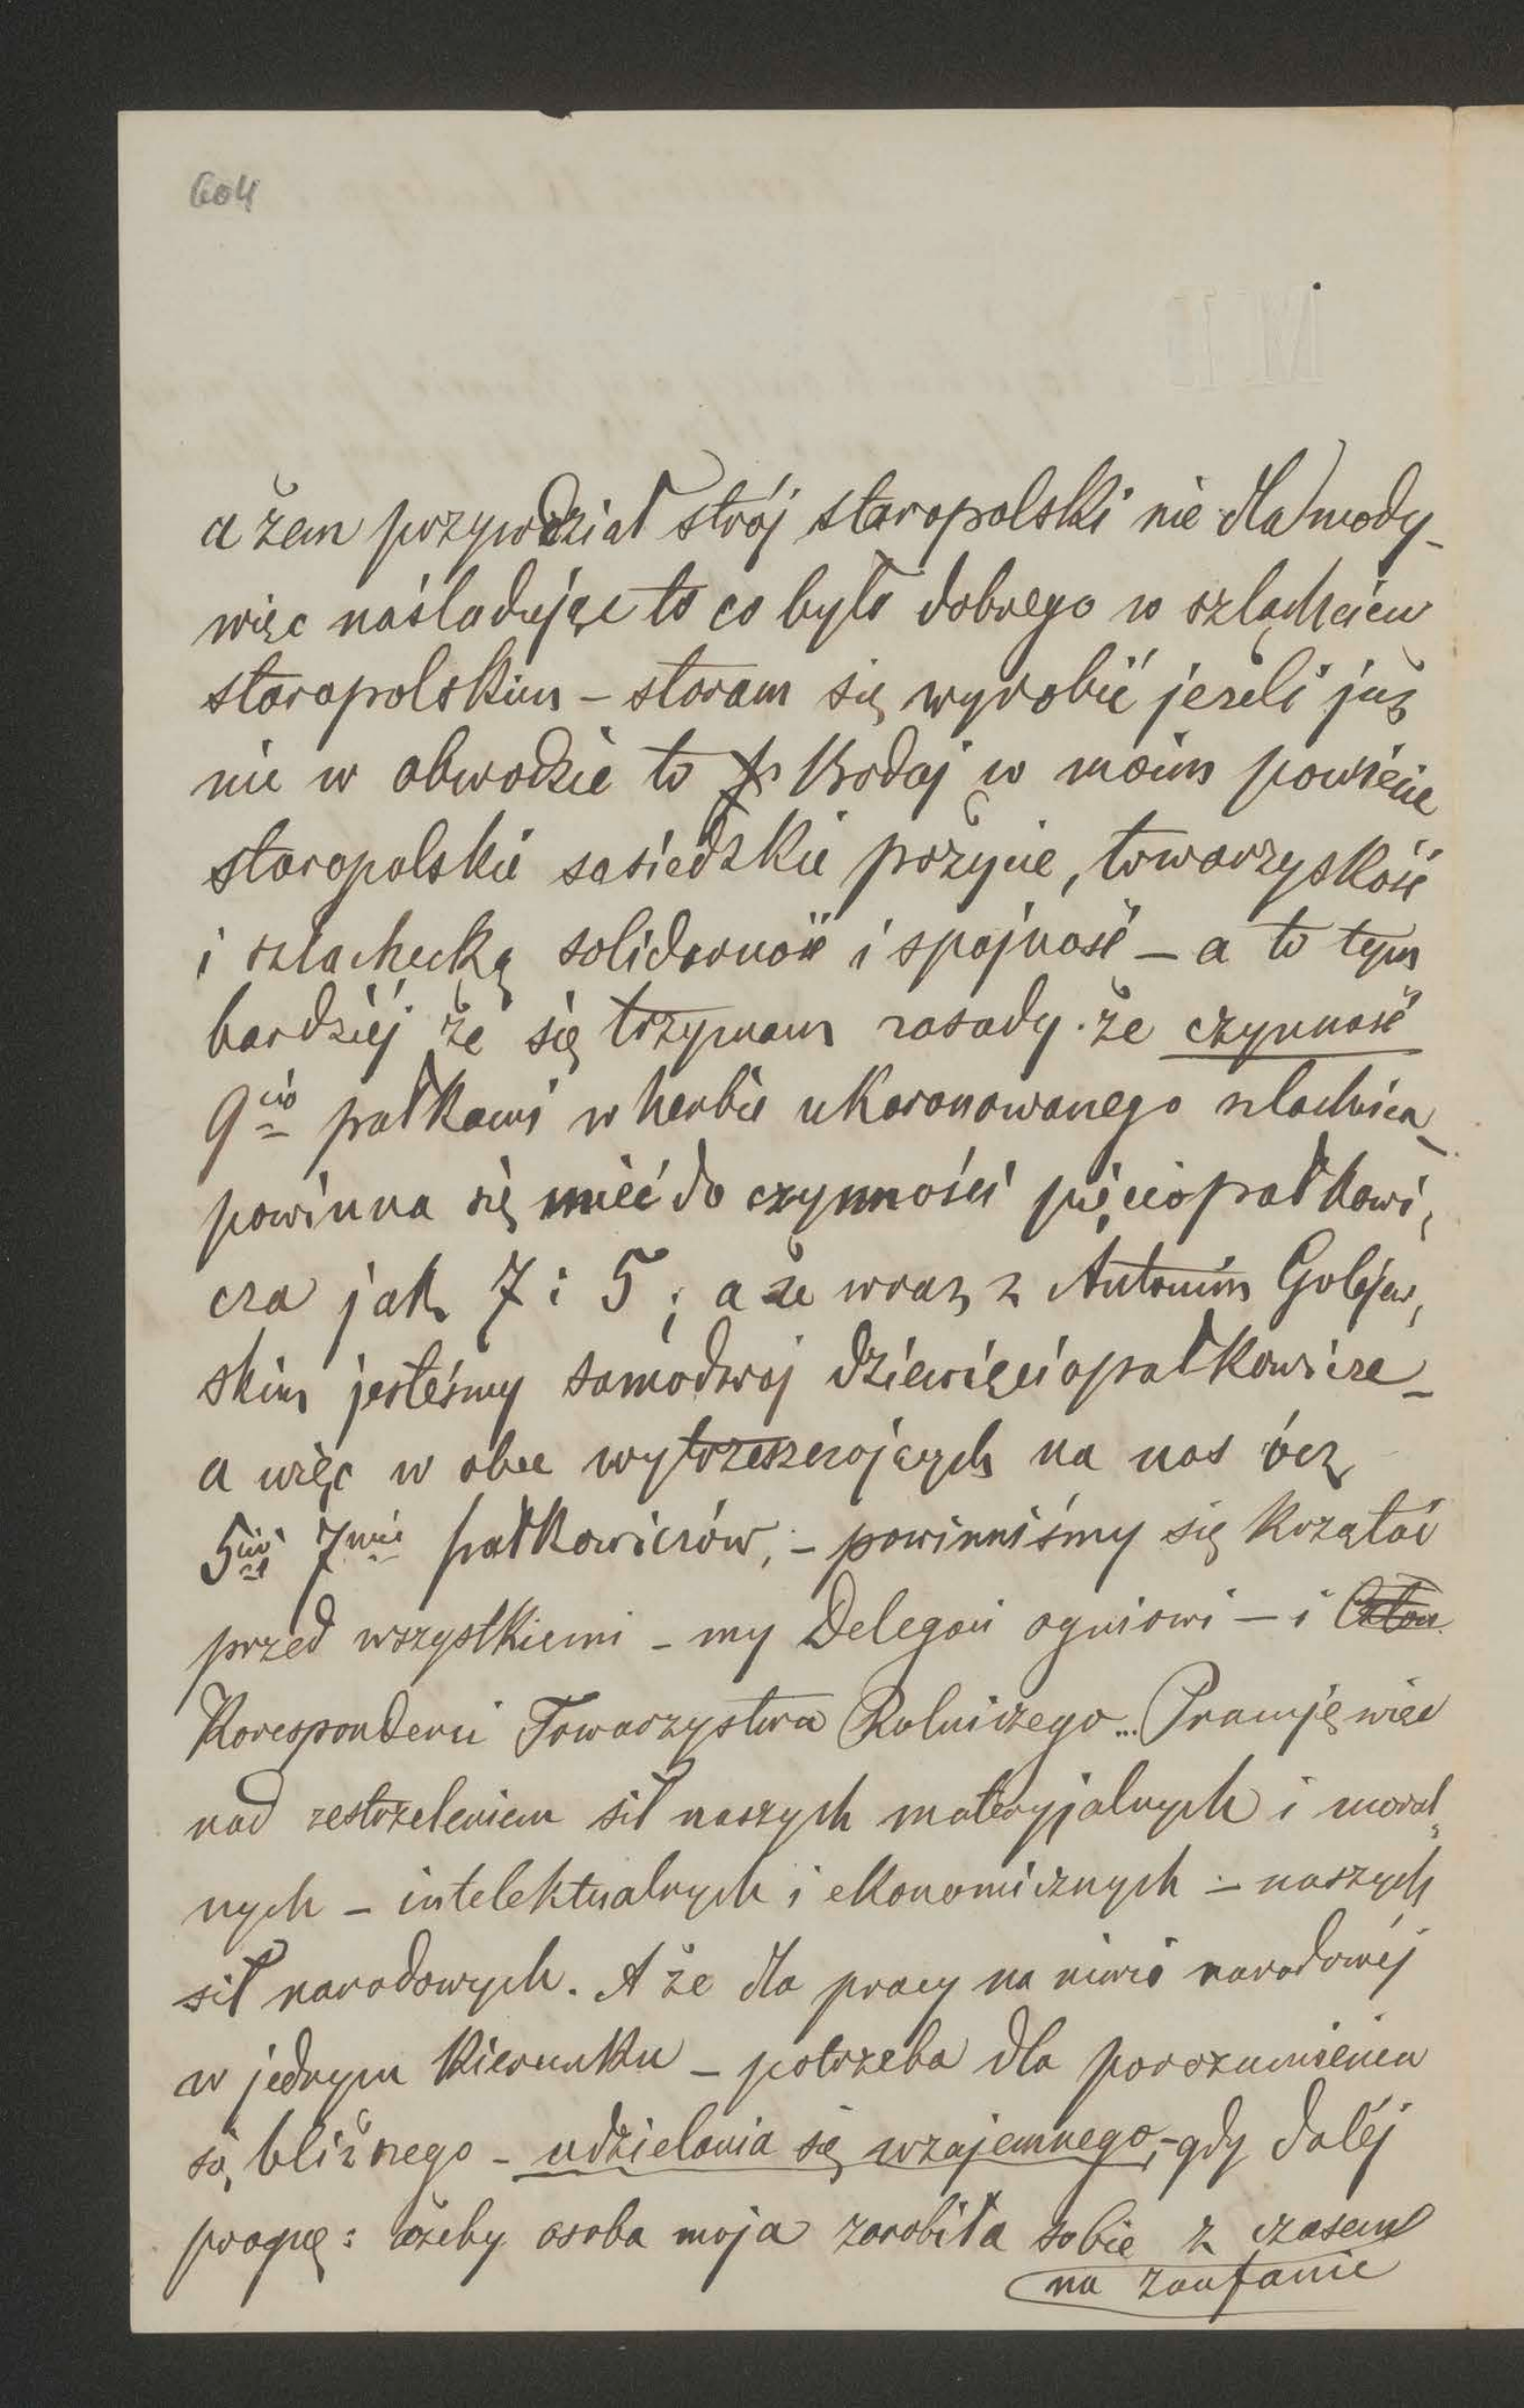 604
a żem przywdział strój staropolski nie dla mody –
więc naśladując to co było dobrego w szlachcicu
staropolskim – staram się wyrobić jeżeli już
nie w obwodzie to bodaj w moim powiecie
staropolskie sąsiedzkie pożycie, towarzyskość
i szlachecką solidarność i spójność – a to tym
bardziéj że się trzymam zasady że czynność
9cio pałkami w herbie ukoronowanego szlachcica –
powinna się mieć do czynności pięciopałkowi,
cza jak 7 : 5 ; a że wraz z Antonim Golejew,
skim jesteśmy samodwaj dziewięciopałkowicze –
a więc w obec wytrzeszczających na nas ócz
5cio 7mio pałkowiczów, – powinniśmy się krzątać
przed wszystkiemi – my Delegaci ogniowi – i Człon
Korespondenci Towarzystwa Rolniczego... Pracuję więc
nad zestrzeleniem sił naszych materyjalnych i moral,
nych – intelektualnych i ekonomicznych – naszych
sił narodowych. A że dla pracy na niwie narodowéj
w jednym kierunku – potrzeba dla porozumienia
się bliższego – udzielania się wzajemnego, – gdy daléj
pragnę : ażeby osoba moja zarobiła sobie z czasem
na zaufanie